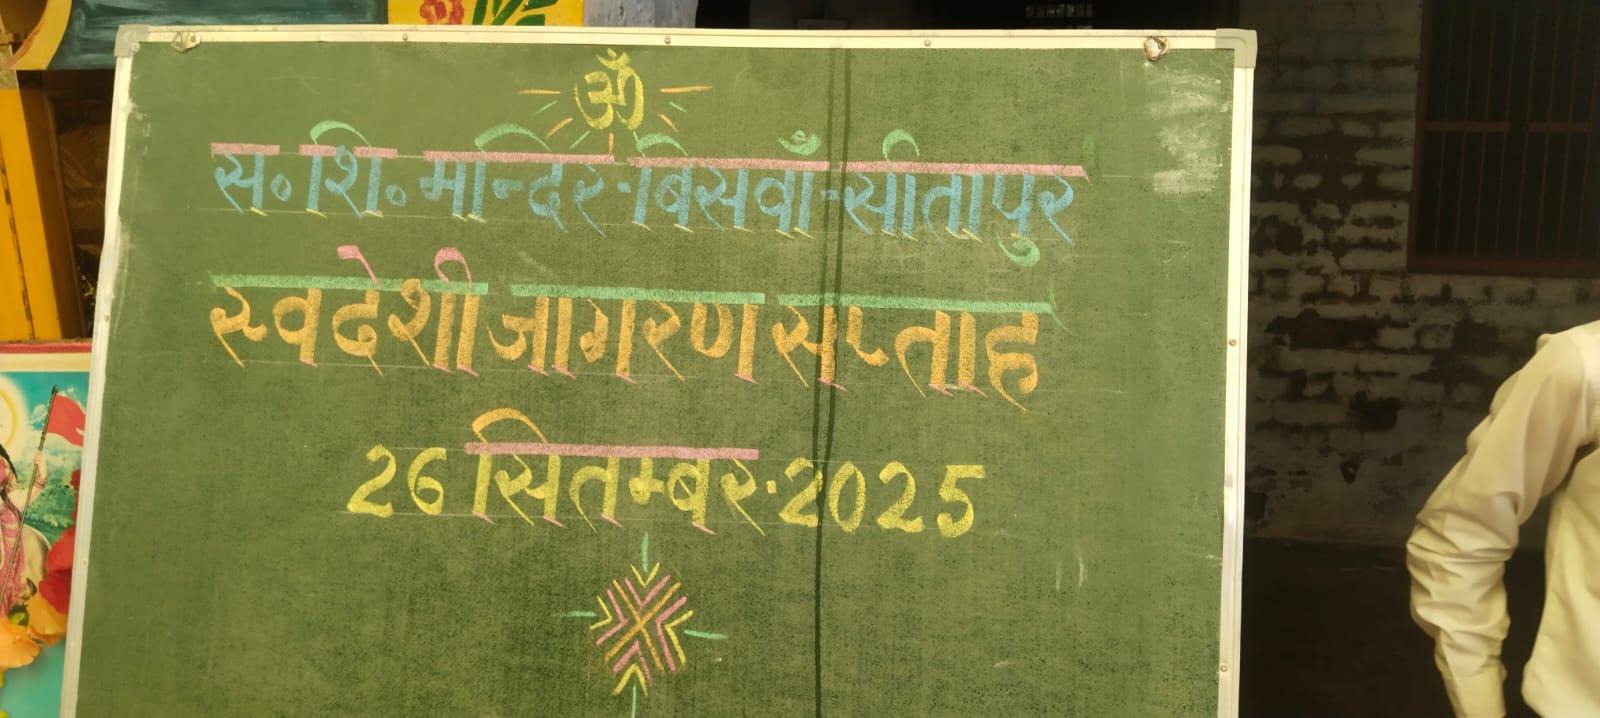 ॐ
स. शि. मन्दिर-बिसवाँ-सीतापुर
स्वदेशी जागरण सप्ताह
26 सितम्बर-2025